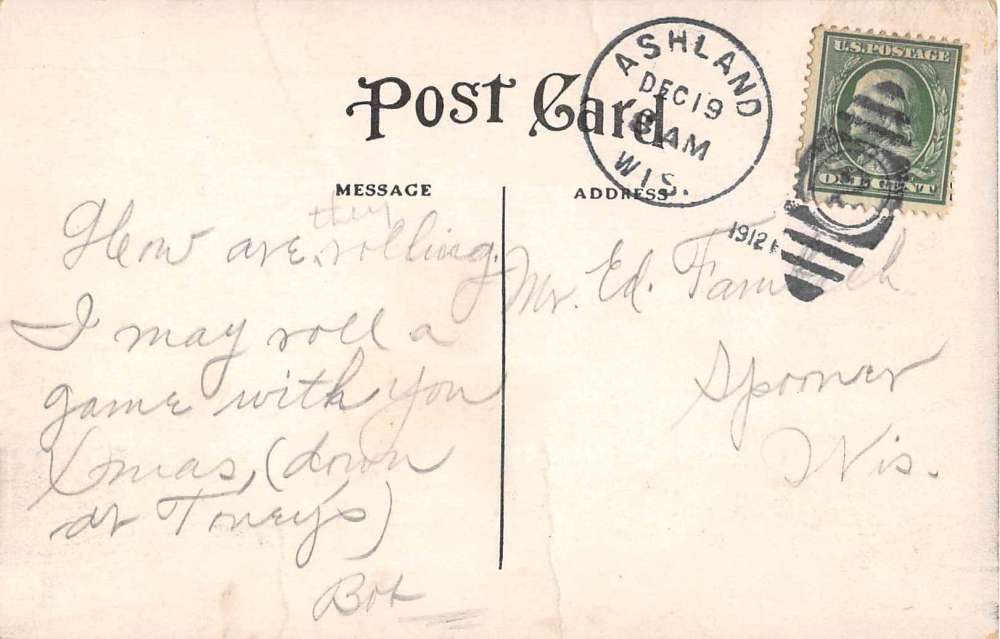 Post Card
ASHLAND
DEC 19
8 AM
WIS.
1912
U.S. POSTAGE
ONE CENT
MESSAGE
ADDRESS
How are they rolling.
I may roll a
game with you
Xmas, (down
at Toney's)
Bob
Mr. Ed.
Spooner
Wis.